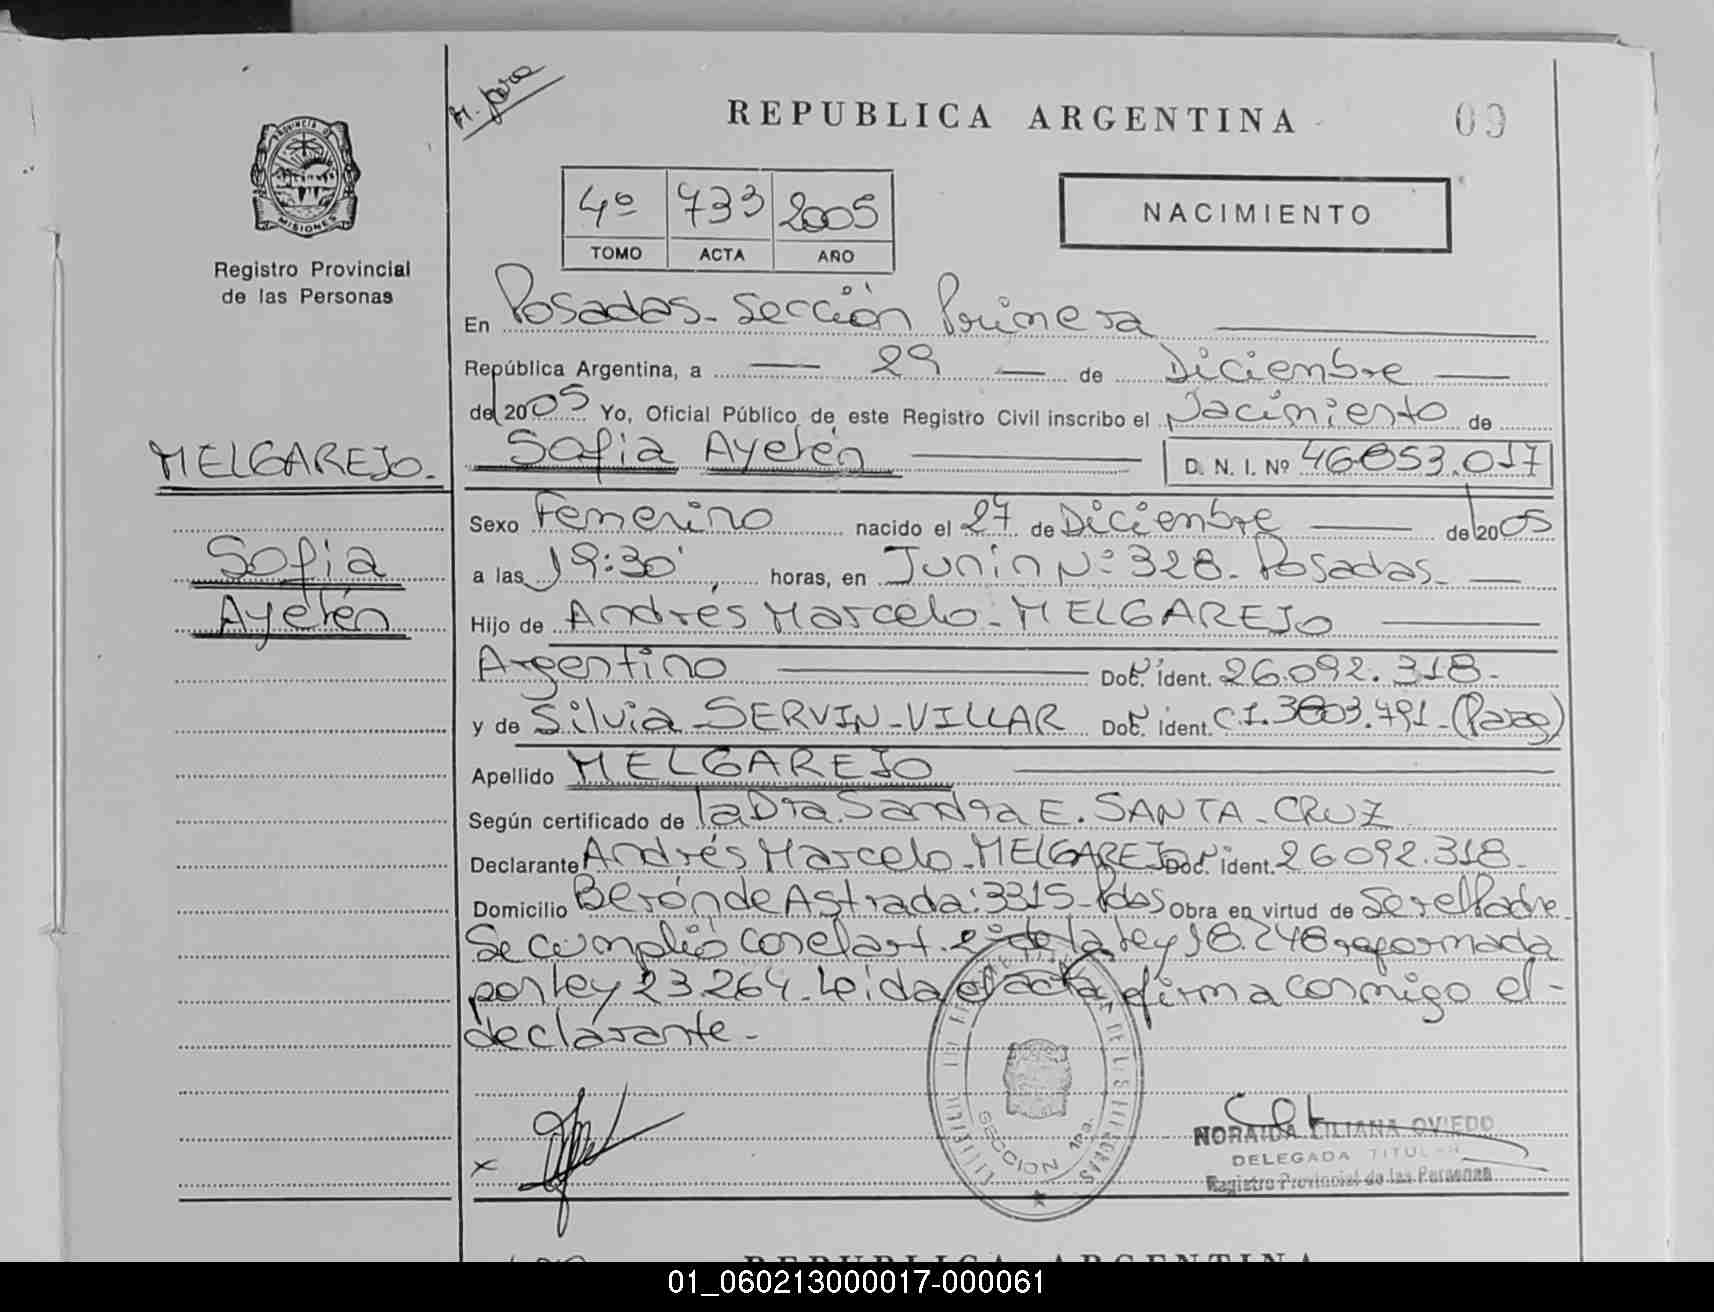 REPUBLICA ARGENTINA
09
PROVINCIA DE
MISIONES
Registro Provincial
de las Personas
4º 733 2005
TOMO ACTA AÑO
NACIMIENTO
En Posadas - Sección Primera
República Argentina, a 29 de Diciembre
del 2005 Yo, Oficial Público de este Registro Civil inscribo el Nacimiento de
MELGAREJO.
Sofia Ayelén D. N. I. Nº 46.853.017
Sexo Femenino nacido el 27 de Diciembre del 2005
Sofia
a las 19:30' horas, en Junín Nº 328 - Posadas -
Ayelén
Hijo de Andrés Marcelo - MELGAREJO
Argentino Doc. ident. 26.092.318 -
y de Silvia - SERVIN - VILLAR Doc. ident. C.I. 3603.491 -
Apellido MELGAREJO
Según certificado de la Dra. Sandra E. SANTA - CRUZ
Declarante Andrés Marcelo - MELGAREJO Doc. ident. 26.092.318 -
Domicilio Berón de Astrada: 3315 - Pdas Obra en virtud de Ser el Padre
Se cumplió con el art. 2º de la ley 18.248 reformada
por ley 23.264. Leída el acta, firma conmigo el -
declarante -
SECCION 1ra.
x
NORAIDA LILIANA OVIEDO
DELEGADA TITULAR
Registro Provincial de las Personas
REPUBLICA ARGENTINA
01_060213000017-000061